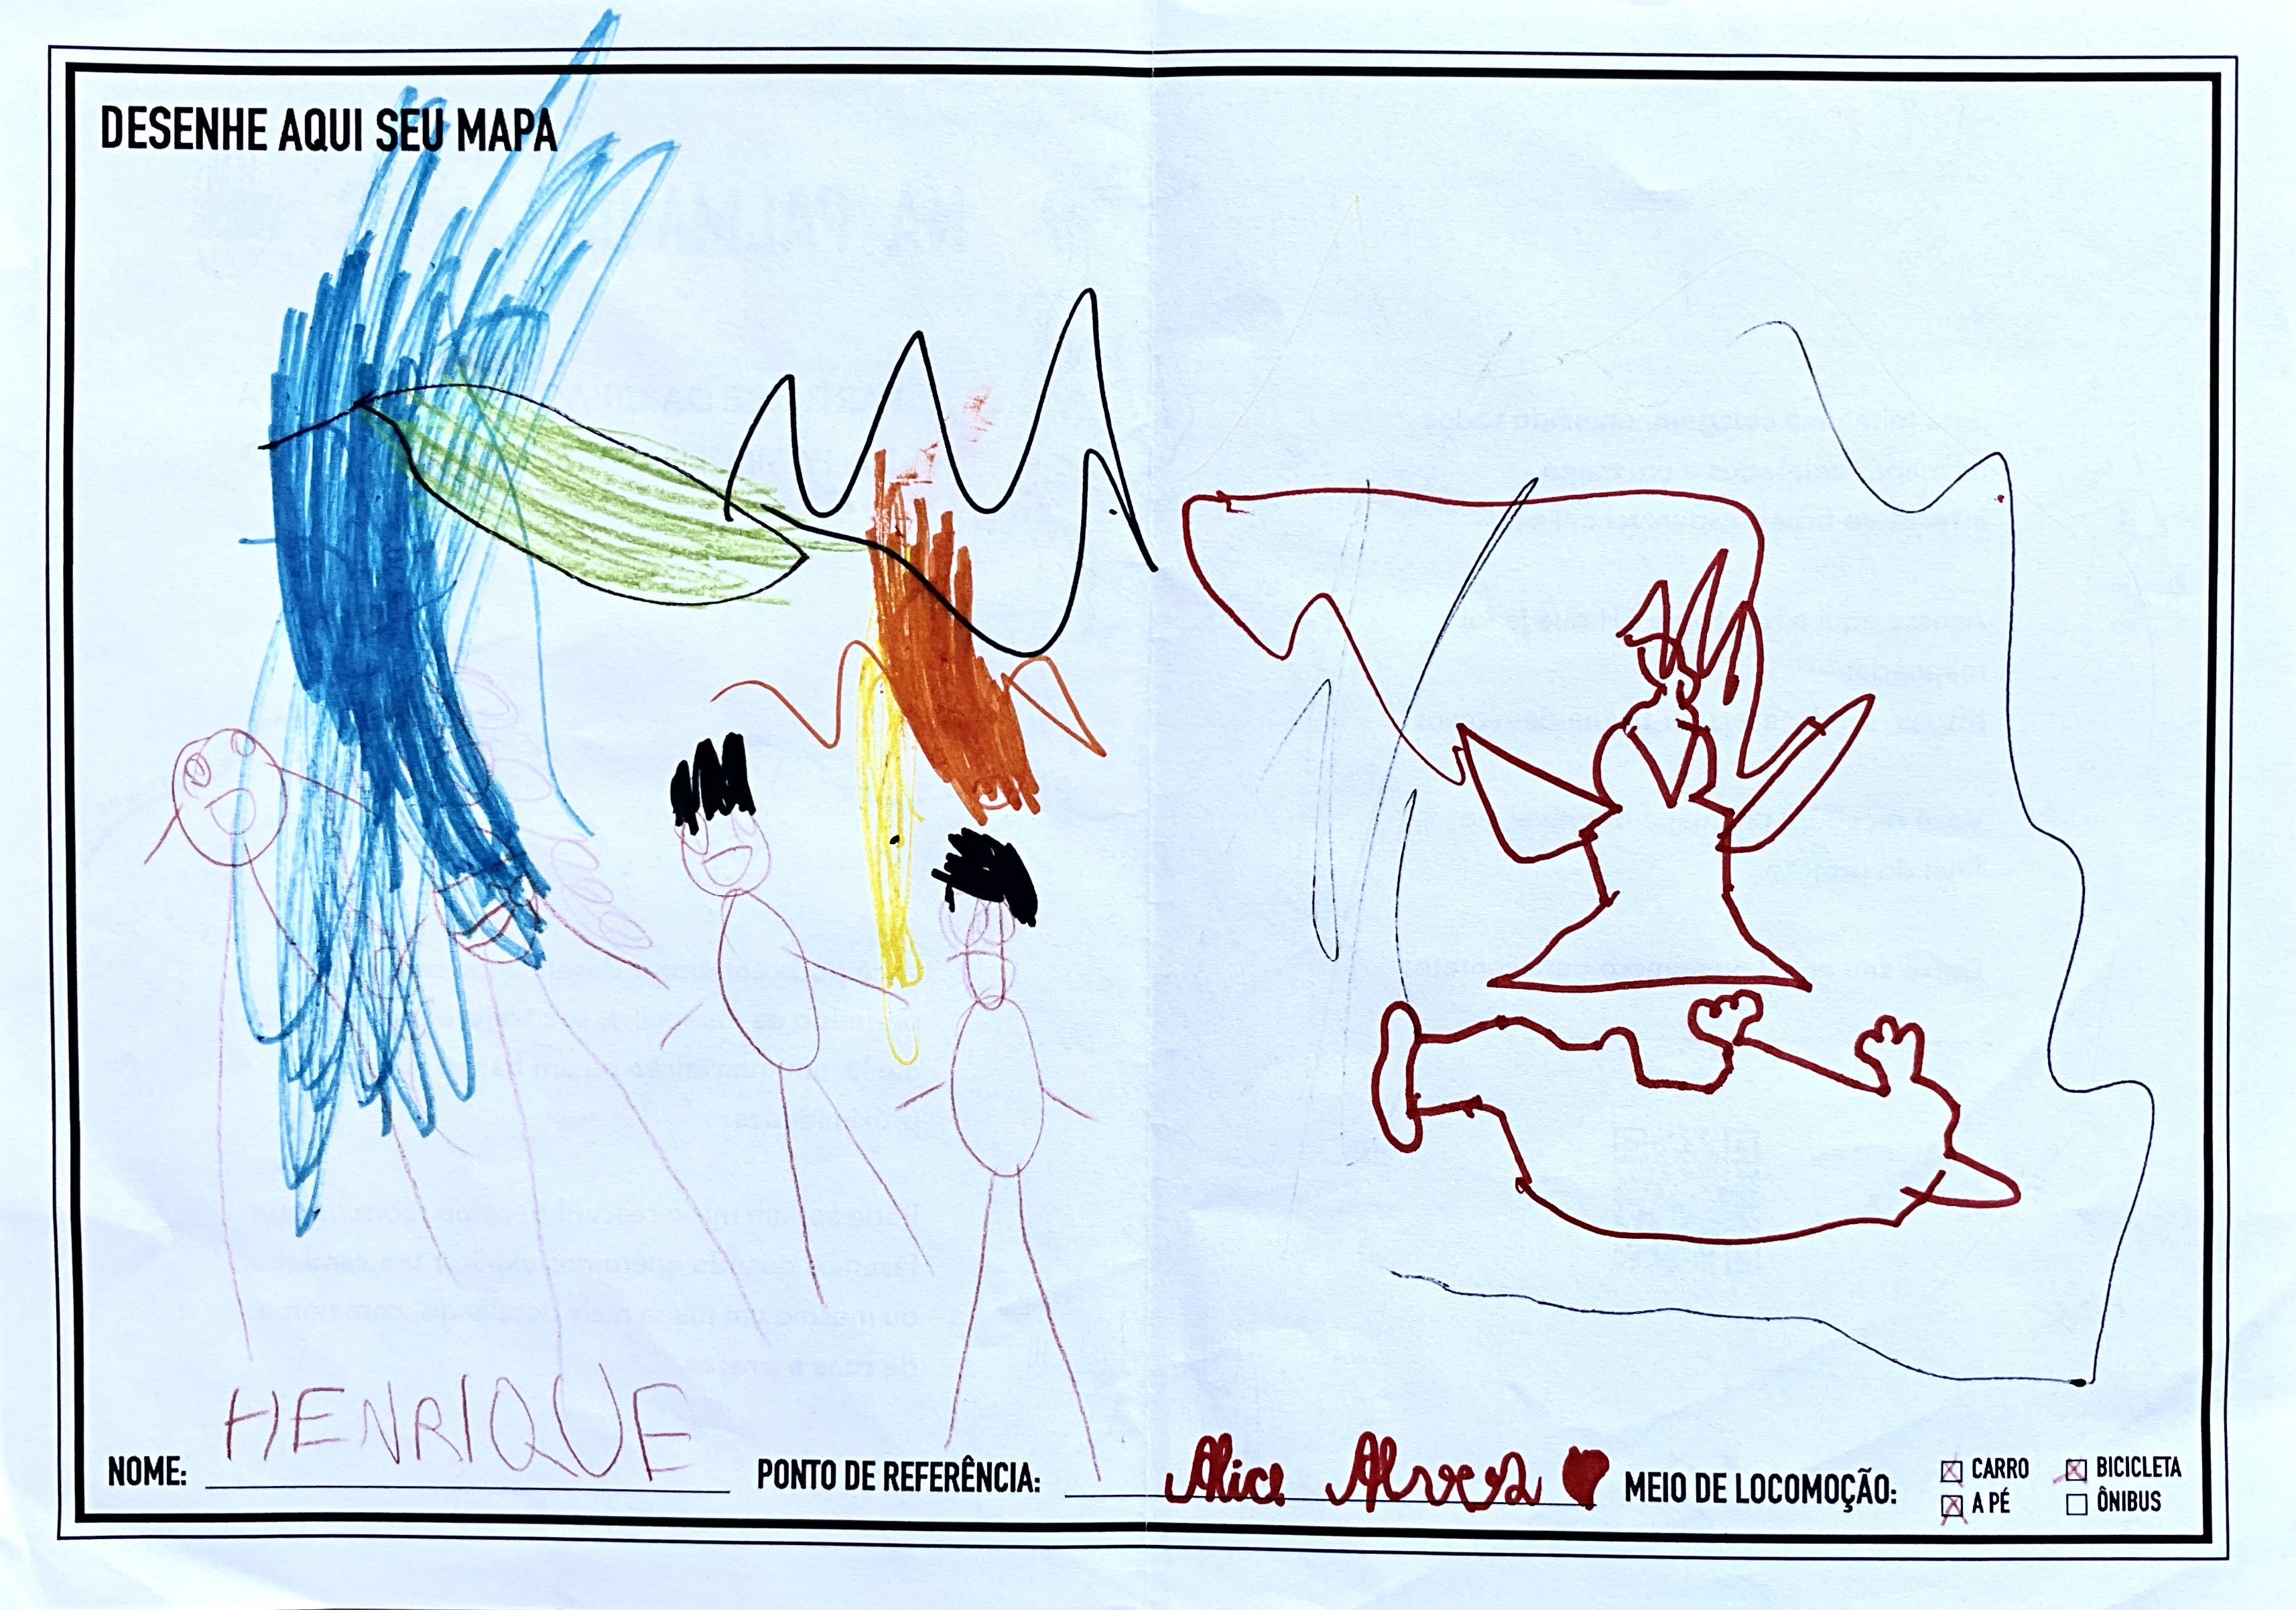 DESENHE AQUI SEU MAPA
HENRIQUE
NOME:
PONTO DE REFERÊNCIA:
Alice Alves
MEIO DE LOCOMOÇÃO:
CARRO
BICICLETA
A PÉ
ÔNIBUS